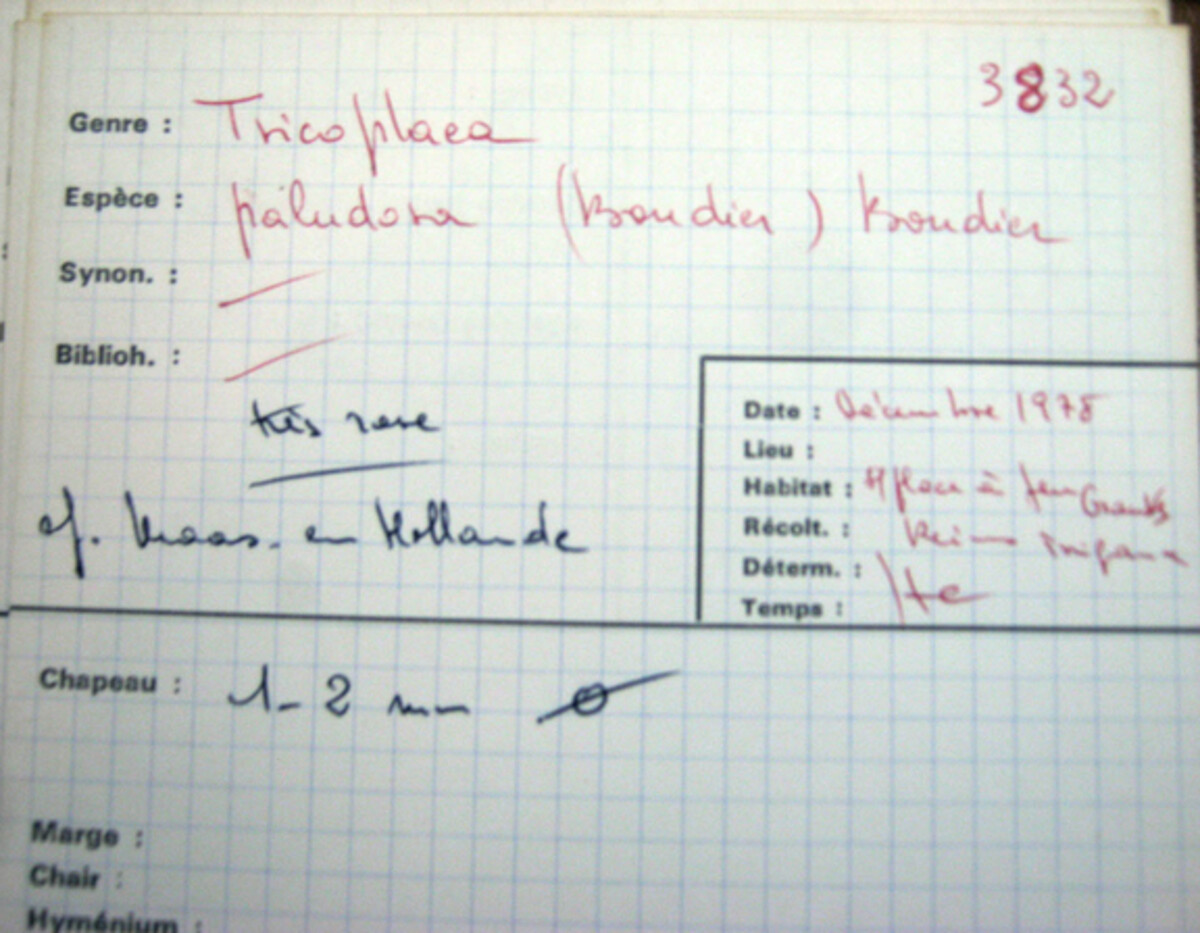 3832
Genre : Tricoplaea
Espèce : paludosa (Boudier) Boudier
Synon. :
Biblioh. :
très rare
cf. Maas. en Hollande
Date : Décembre 1978
Lieu :
Habitat : place à feu
Récolt. :
Déterm. :
Temps :
Chapeau : 1-2 mm Ø
Marge :
Chair :
Hyménium :